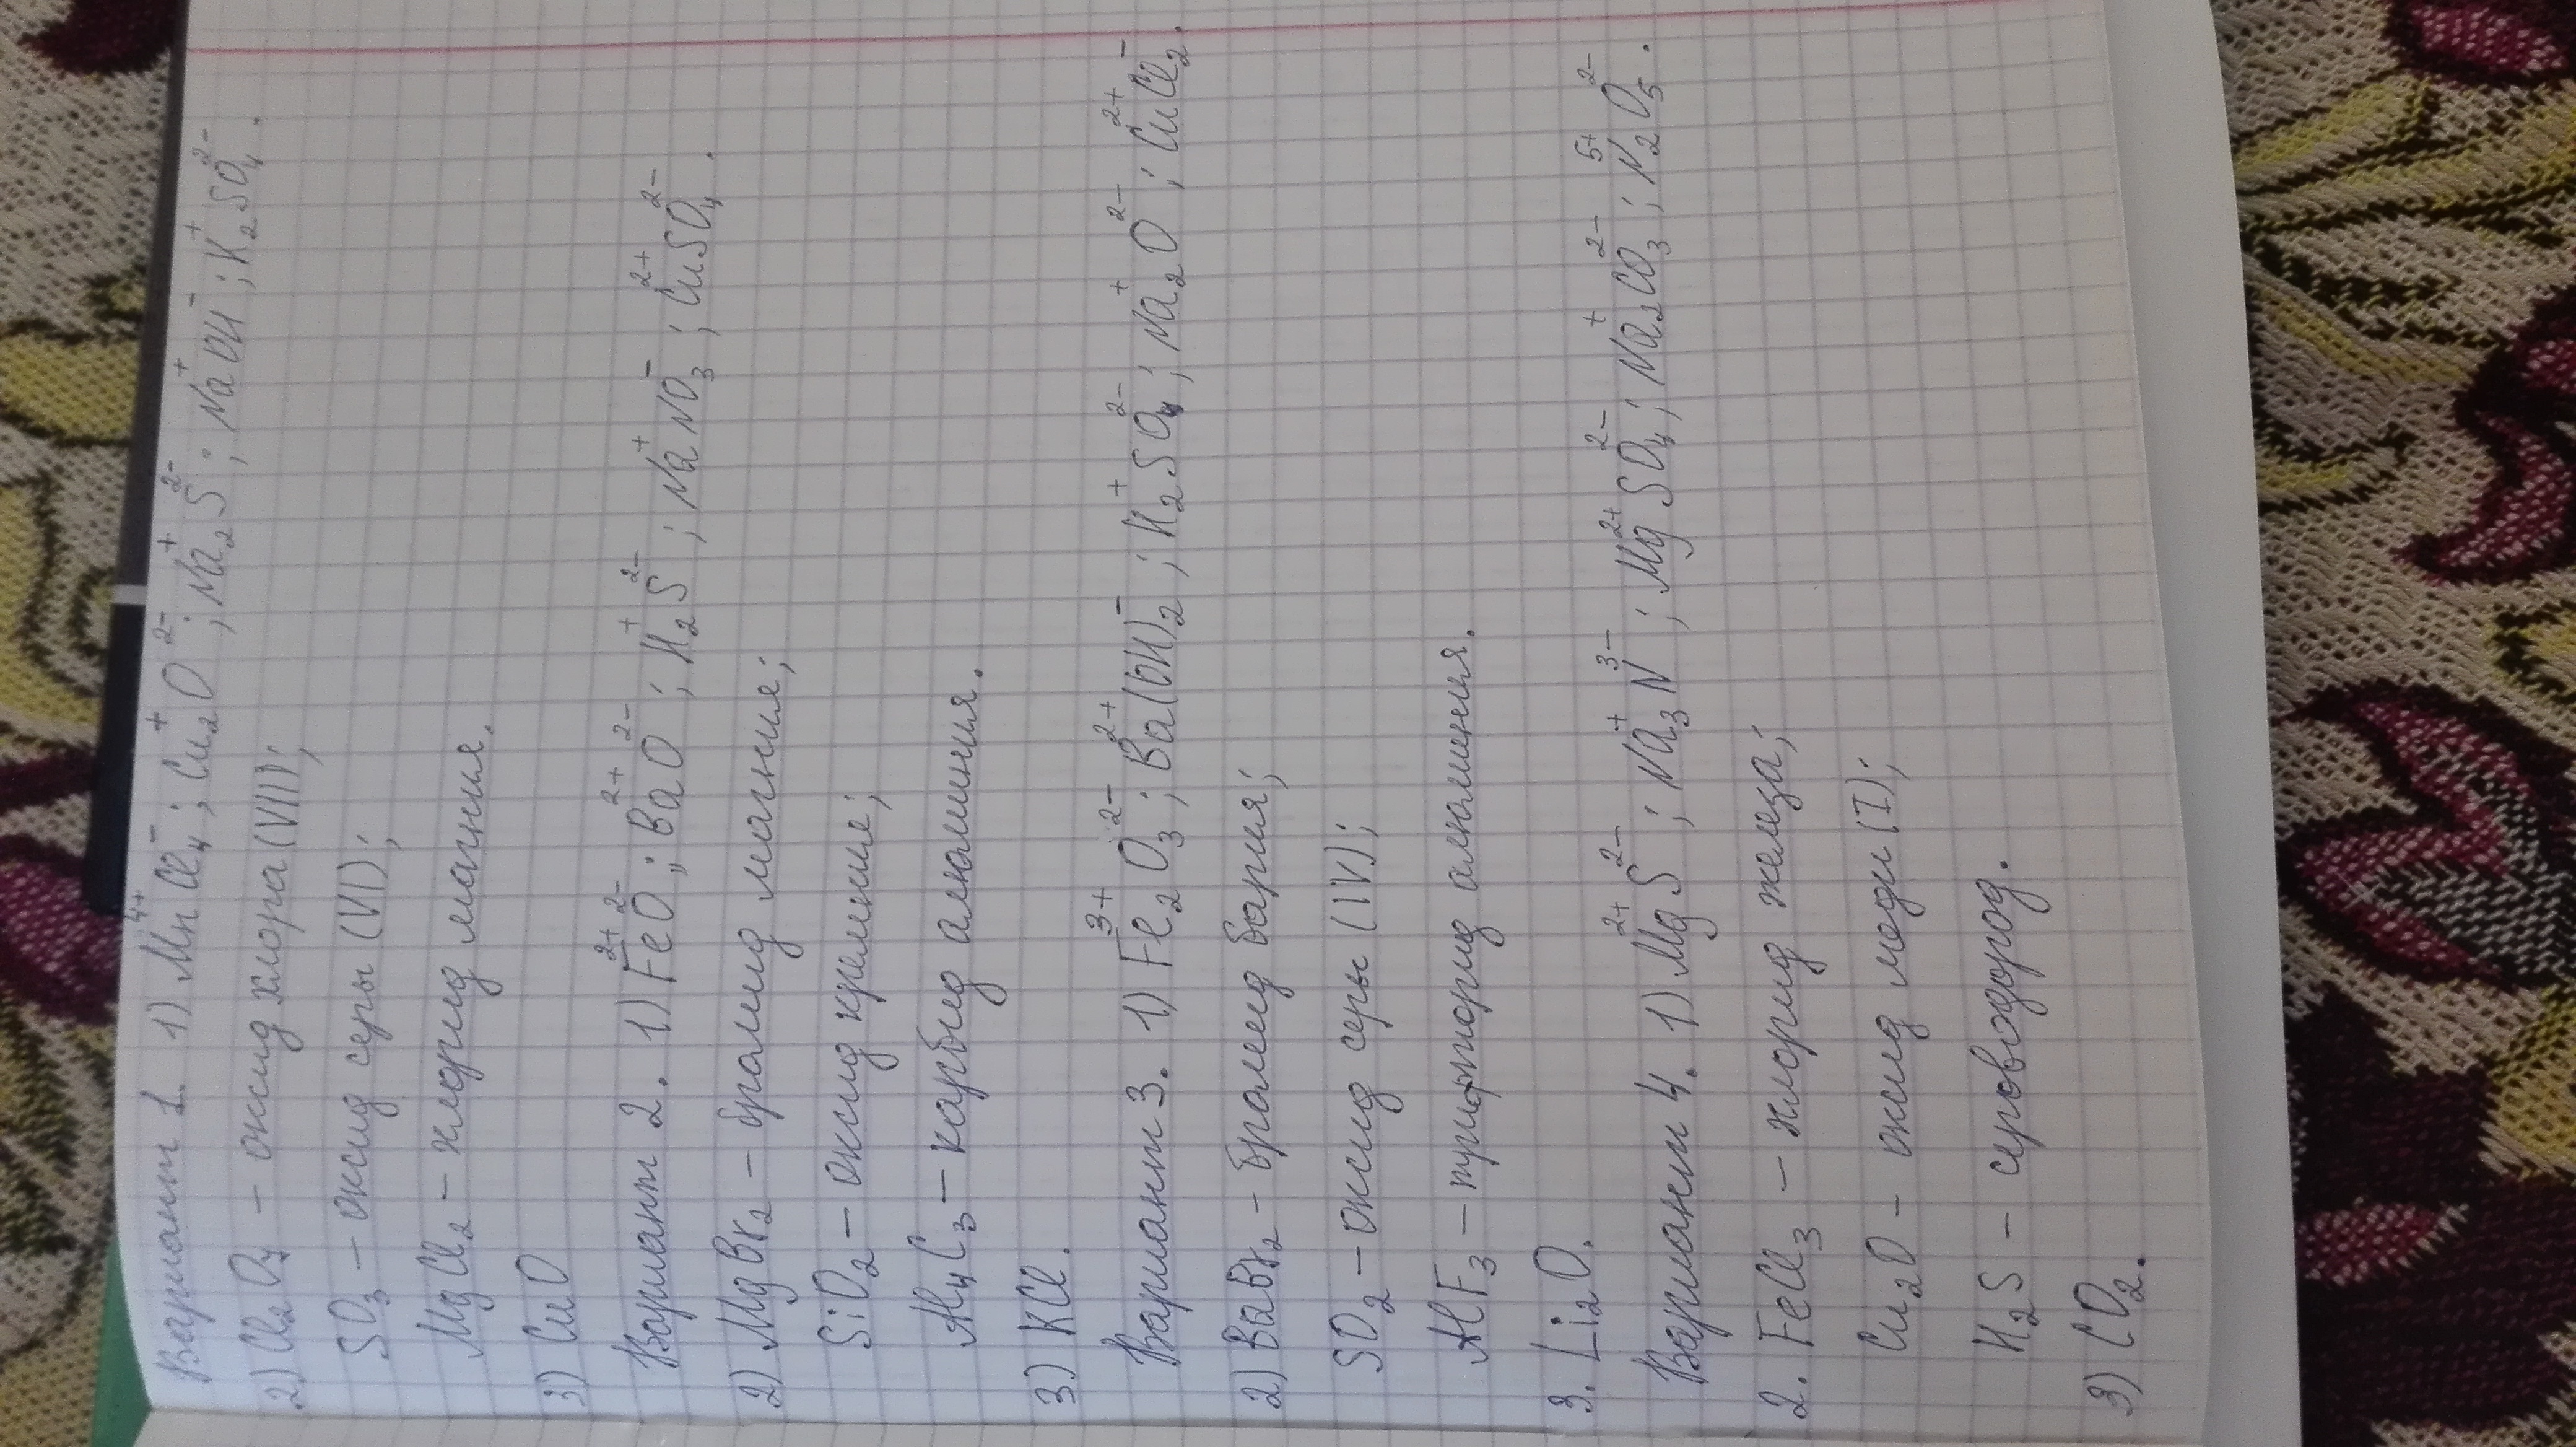 Вариант 1. 1) Mn⁴⁺Cl₄⁻; Cu₂⁺O²⁻; Na₂⁺S²⁻; Na⁺OH⁻; K₂⁺SO₄²⁻.
2) Cl₂O₇ – оксид хлора (VII);
SO₃ – оксид серы (VI);
MgCl₂ – хлорид магния.
3) CuO
Вариант 2. 1) Fe²⁺O²⁻; Ba²⁺O²⁻; H₂⁺S²⁻; Na⁺NO₃⁻; Cu²⁺SO₄²⁻.
2) MgBr₂ – бромид магния;
SiO₂ – оксид кремние;
Al₄C₃ – карбид алюминия.
3) KCl.
Вариант 3. 1) Fe₂³⁺O₃²⁻; Ba²⁺(OH)₂⁻; H₂⁺SO₄²⁻; Na₂⁺O²⁻; Cu²⁺Cl₂⁻.
2) BaBr₂ – бромид бария;
SO₂ – оксид серы (IV);
AlF₃ – трифторид алюминия.
3. Li₂O.
Вариант 4. 1) Mg²⁺S²⁻; Na₃⁺N³⁻; Mg²⁺SO₄²⁻; Na₂⁺CO₃²⁻; N₂⁵⁺O₅²⁻.
2. FeCl₃ – хлорид железа;
Cu₂O – оксид меди (I);
H₂S – сероводород.
3) CO₂.